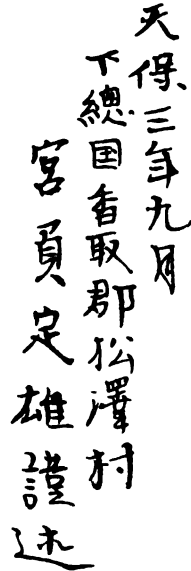 天保三年九月
下總国香取郡松澤村
宮負定雄謹述